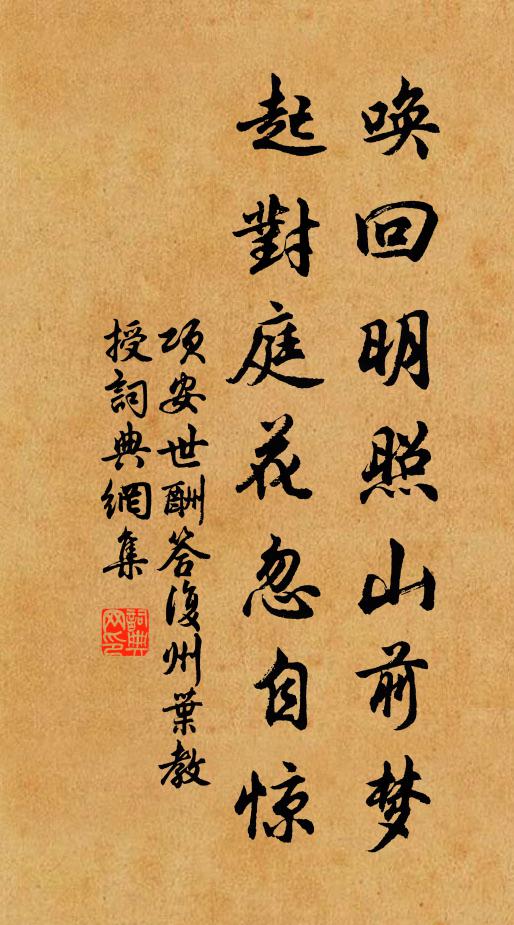 唤回明照山前梦
起對庭花忽自惊
项安世酬答復州葉教
授詞典網集
詞典
网印